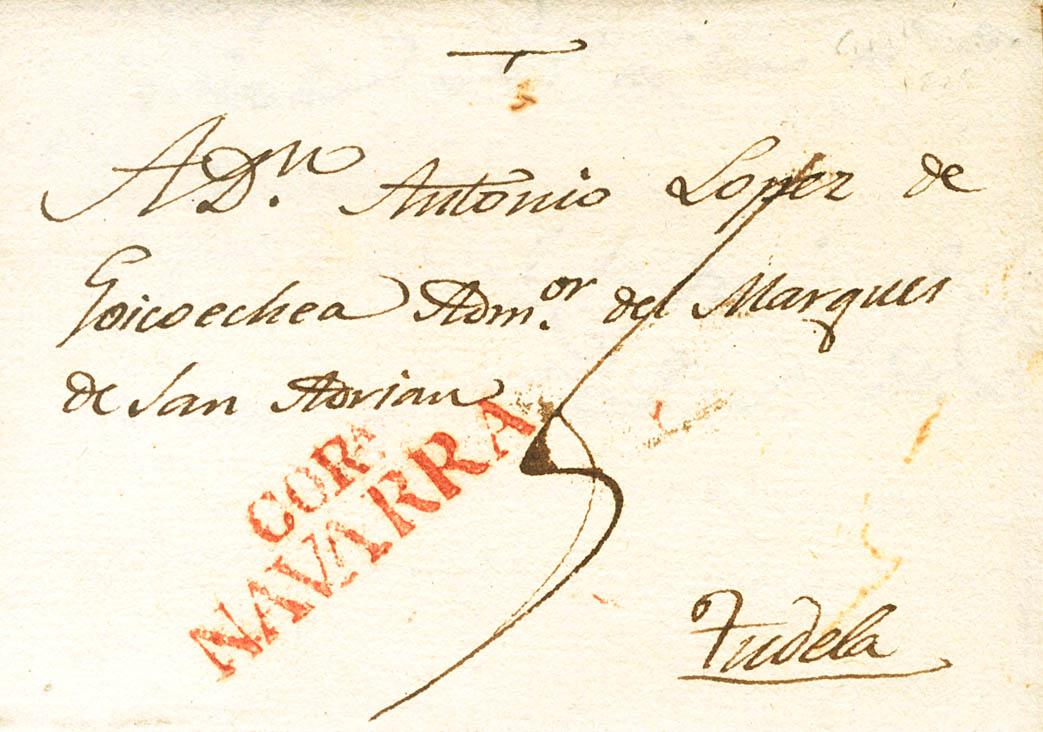 A D.ⁿ Antonio Lopez de
Goicoechea Adm.ᵒʳ del Marques
de San Adrian
COR.ᴬ
NAVARRA
Tudela